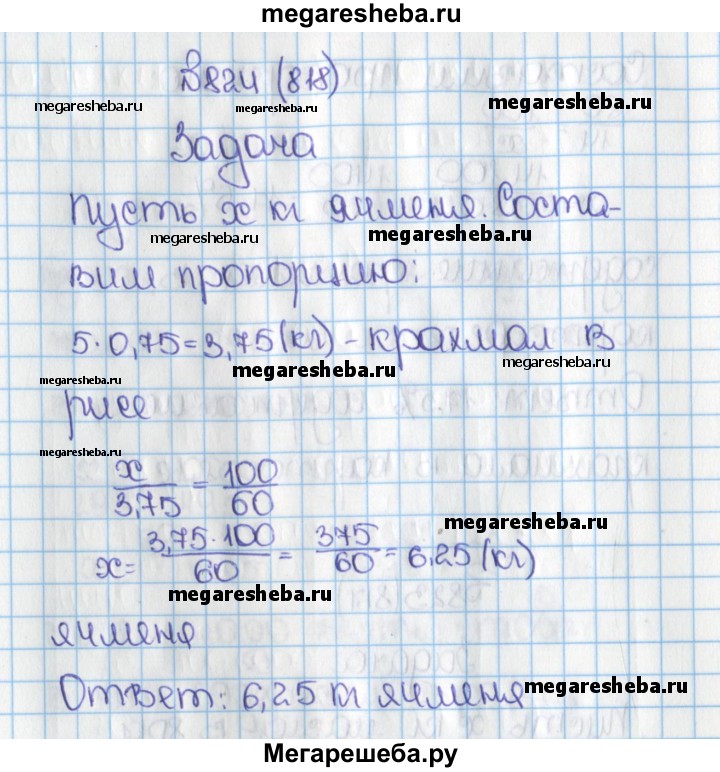 megaresheba.ru
№824 (818)
megaresheba.ru megaresheba.ru megaresheba.ru
Задача
Пусть x кг ячменя. Соста-
megaresheba.ru megaresheba.ru
вим пропорцию:
5·0,75=3,75(кг)-крахмал в
megaresheba.ru megaresheba.ru
megaresheba.ru
рисе
megaresheba.ru
x/3,75 = 100/60
megaresheba.ru
x= 3,75·100/60 = 375/60 = 6,25 (кг)
megaresheba.ru
ячменя
Ответ: 6,25 кг ячменя
megaresheba.ru
Мегарешеба.ру